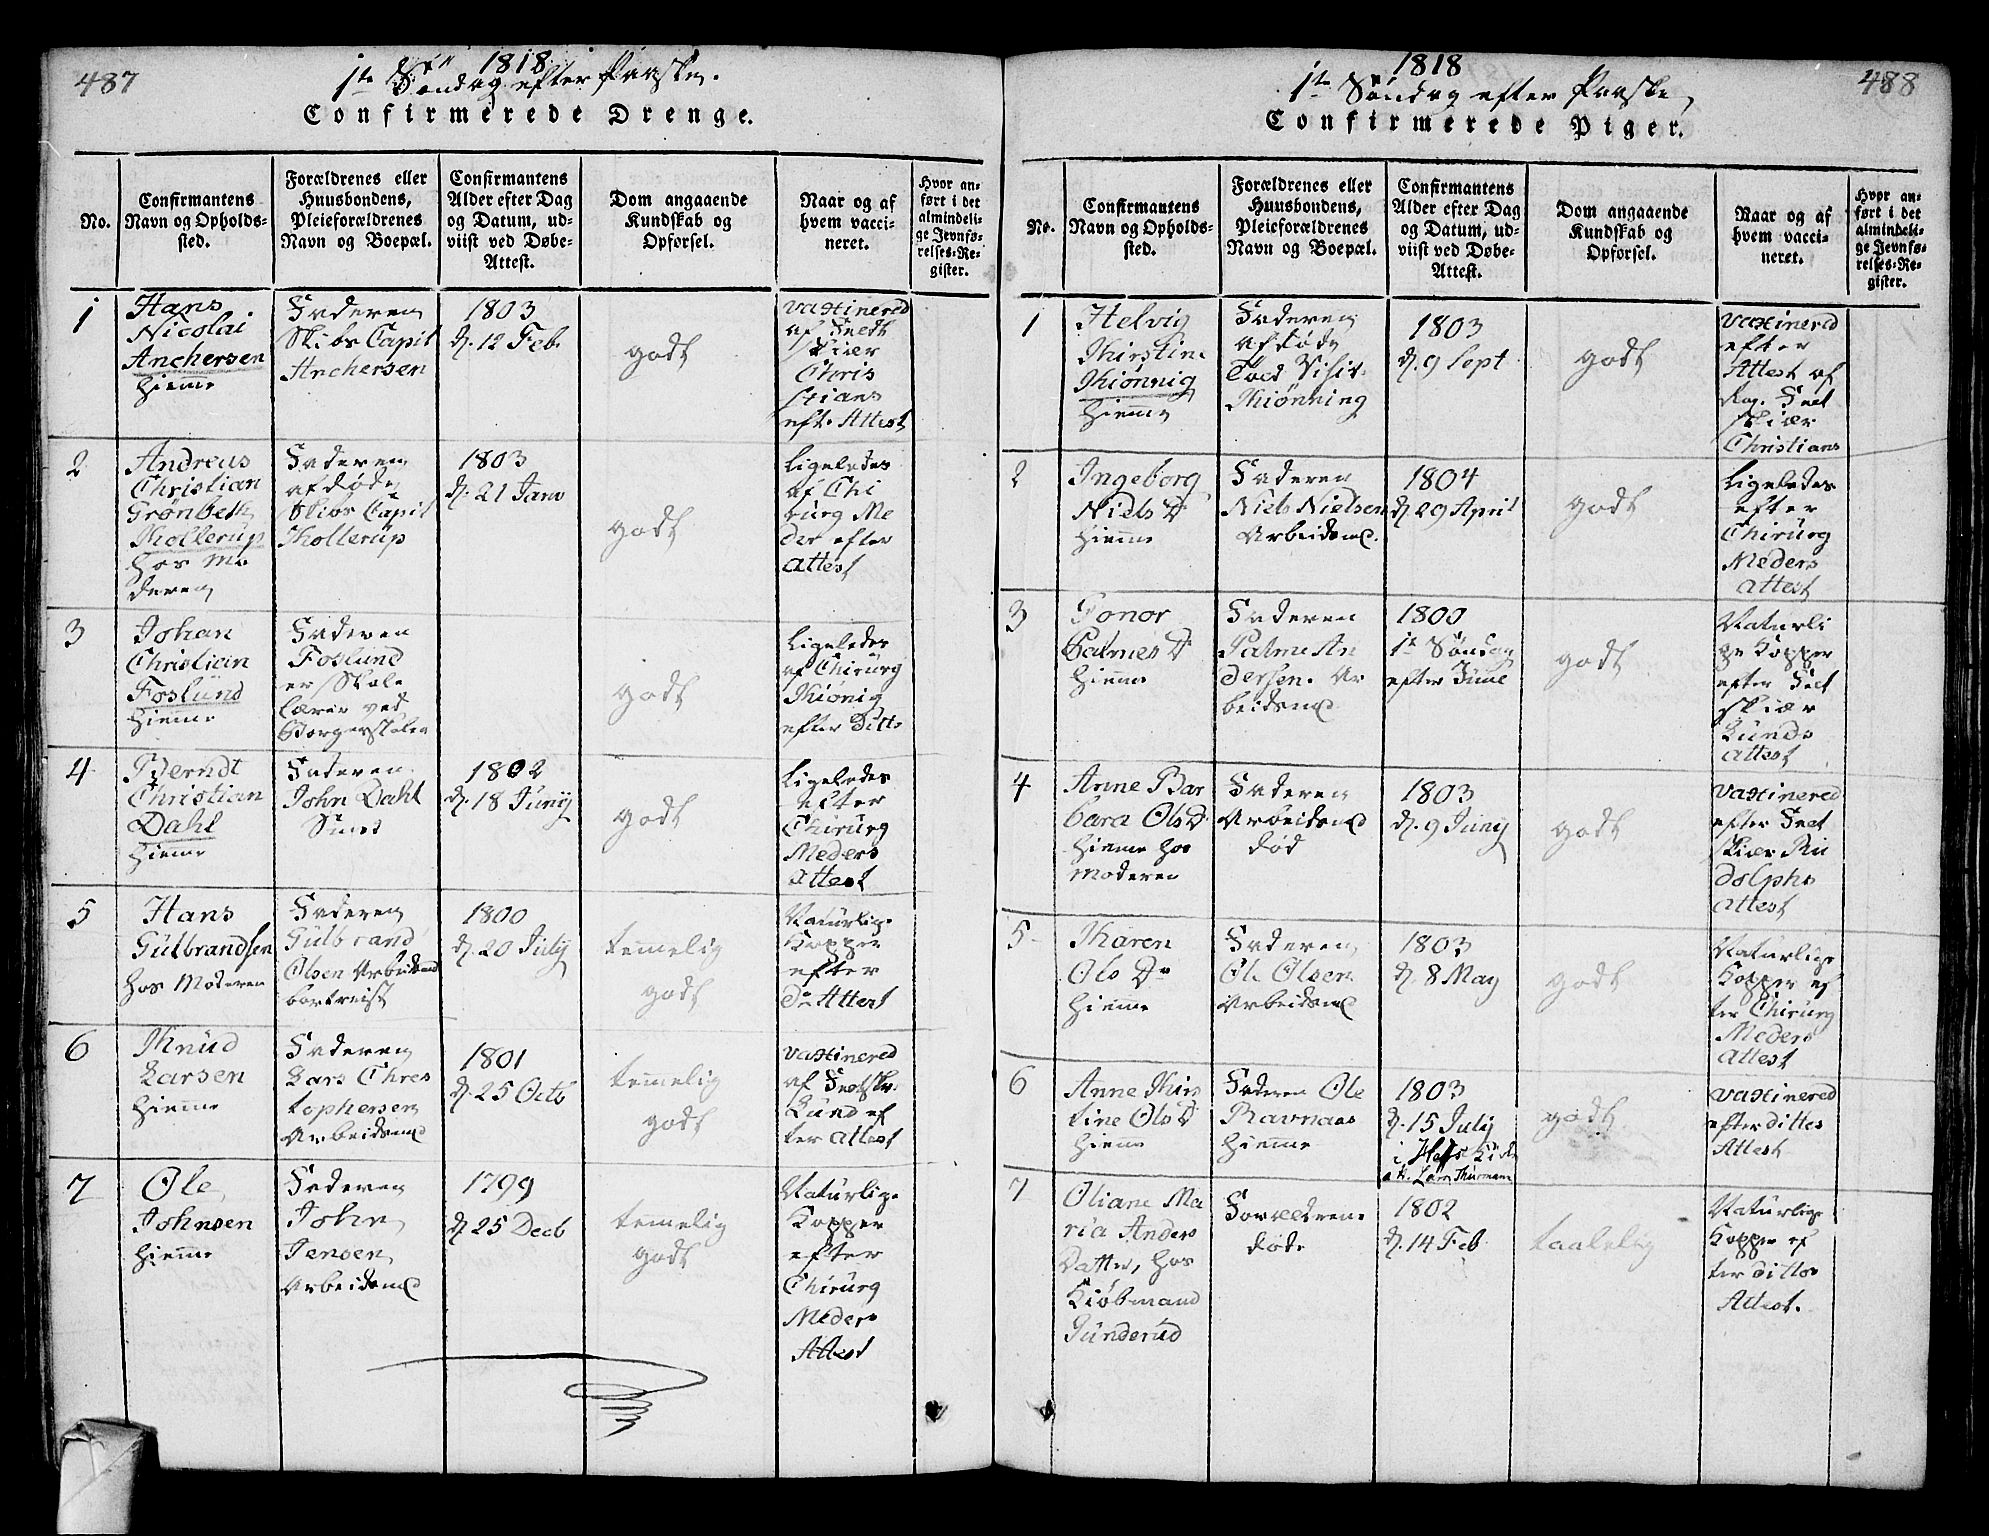 487
1818
1te Søndag efter Paaske.
Confirmerede Drenge.
No.
Confirmantens
Navn og Opholds-
sted.
Forældrenes eller
Huusbondens,
Pleieforældrenes
Navn og Boepæl.
Confirmantens
Alder efter Dag
og Datum, ud-
viist ved Døbe-
Attest.
Dom angaaende
Kundskab og
Opførsel.
Naar og af
hvem vacci-
neret.
Hvor an-
ført i det
almindeli-
ge Jevnfø-
relses-Re-
gister.
1
Hans
Nicolai
Anchersen
hiemme
Faderen
Skibs Capit
Anchersen
1803
d. 12 Feb.
godt
vaxinered
af Feldt
skiær
Chris
tians
eft. Attest
2
Andreas
Christian
Grønbeth
Thollerup
hos Mo
deren
Faderen
afdøde
Skibs Capit
Thollerup
1803
d. 21 Janv
godt
Ligeledes
af Chi
rurg Me
der efter
Attest
3
Johan
Christian
Foslund
hiemme
Faderen
Foslund
er Skole
lærer ved
Borgerskolen
godt
Ligeledes
af Chirurg
Kiønig
efter Ditto
4
Berndt
Christian
Dahl
hiemme
Faderen
John Dahl
Smed
1802
d. 18 Junij
godt
Ligeledes
efter
Chirurg
Meders
Attest
5
Hans
Gulbrandsen
hos Moderen
Faderen
Gulbrand
Olsen Arbeidsmd
bortreist
1800
d. 20 July
temmelig
godt
Naturlige
Kopper
efter
Do Attest
6
Knud
Larsen
hiemme
Faderen
Lars Chres
tophersen
Arbeidsmd
1801
d. 25 Octb
temmelig
godt
vaxinered
af Feltsk.
Lund ef
ter Attest
7
Ole
Johnsen
hiemme
Faderen
John
Jensen
Arbeidsmd
1799
d. 25 Decb
temmelig
godt
Naturlige
Kopper
efter
Chirurg
Meders
Attest
1818
488
1te Søndag efter Paaske
Confirmerede Piger.
No.
Confirmantens
Navn og Opholds-
sted.
Forældrenes eller
Huusbondens,
Pleieforældrenes
Navn og Boepæl.
Confirmantens
Alder efter Dag
og Datum, ud-
viist ved Døbe-
Attest.
Dom angaaende
Kundskab og
Opførsel.
Naar og af
hvem vacci-
neret.
Hvor an-
ført i det
almindeli-
ge Jevnfø-
relses-Re-
gister.
1
Helvig
Kirstine
Kiønnig
hiemme
Faderen
afdøde
Told Visit.
Kiønning
1803
d. 9 Sept
godt
vaxinered
efter
Attest af
Reg. Felt
skiær
Christians
2
Ingeborg
Niels D
hiemme
Faderen
Niels Nielsen
Arbeidsmd.
1804
d. 29 April
godt
Ligeledes
efter
Chirurg
Meders
Attest
3
Gonor
Palmes D
hiemme
Faderen
Palme An
dersen. Ar
beidsmd
1800
1te Søndag
efter Juul
godt
Naturli
ge Kopper
efter Felt
skiær
Lunds
Attest
4
Anne Bar
bara Ols D
hiemme hos
Moderen
Faderen
Arbeidsmd
død
1803
d. 9 Junij
godt
vaxinered
efter Felt
skiær Ru
dolphs
Attest
5
Karen
Ols Dr
hiemme
Faderen
Ole Olsen
Arbeidsmd
1803
d. 8 May
godt
Naturlige
Kopper ef
ter Chirurg
Meders
Attest
6
Anne Kirs
tine Ols D
hieme
Faderen Ole
Ravnaas
hiemme
1803
d. 15 July
godt
vaxinered
efter dittes
Attest
7
Oliane Ma
ria Anders
Datter, hos
Kiøbmand
Gunderud
Forældrene
døde
1802
d. 14 Feb
taalelig
Naturlige
Kopper ef
ter dittos
Attest.